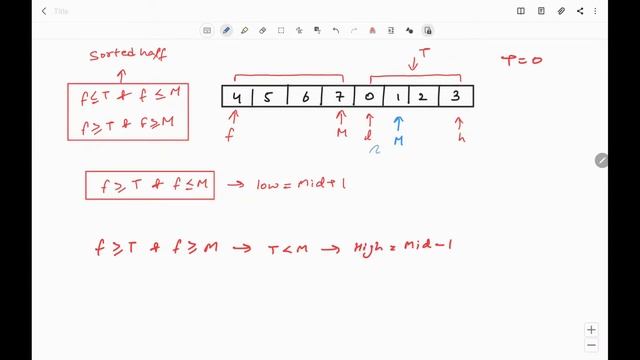 Title
Sorted half
T
T=0
f≤T & f≤M
f≥T & f≥M
4 5 6 7 0 1 2 3
f M l M h
f≥T & f≤M → low = Mid+1
f≥T & f≥M → T<M → High = Mid-1